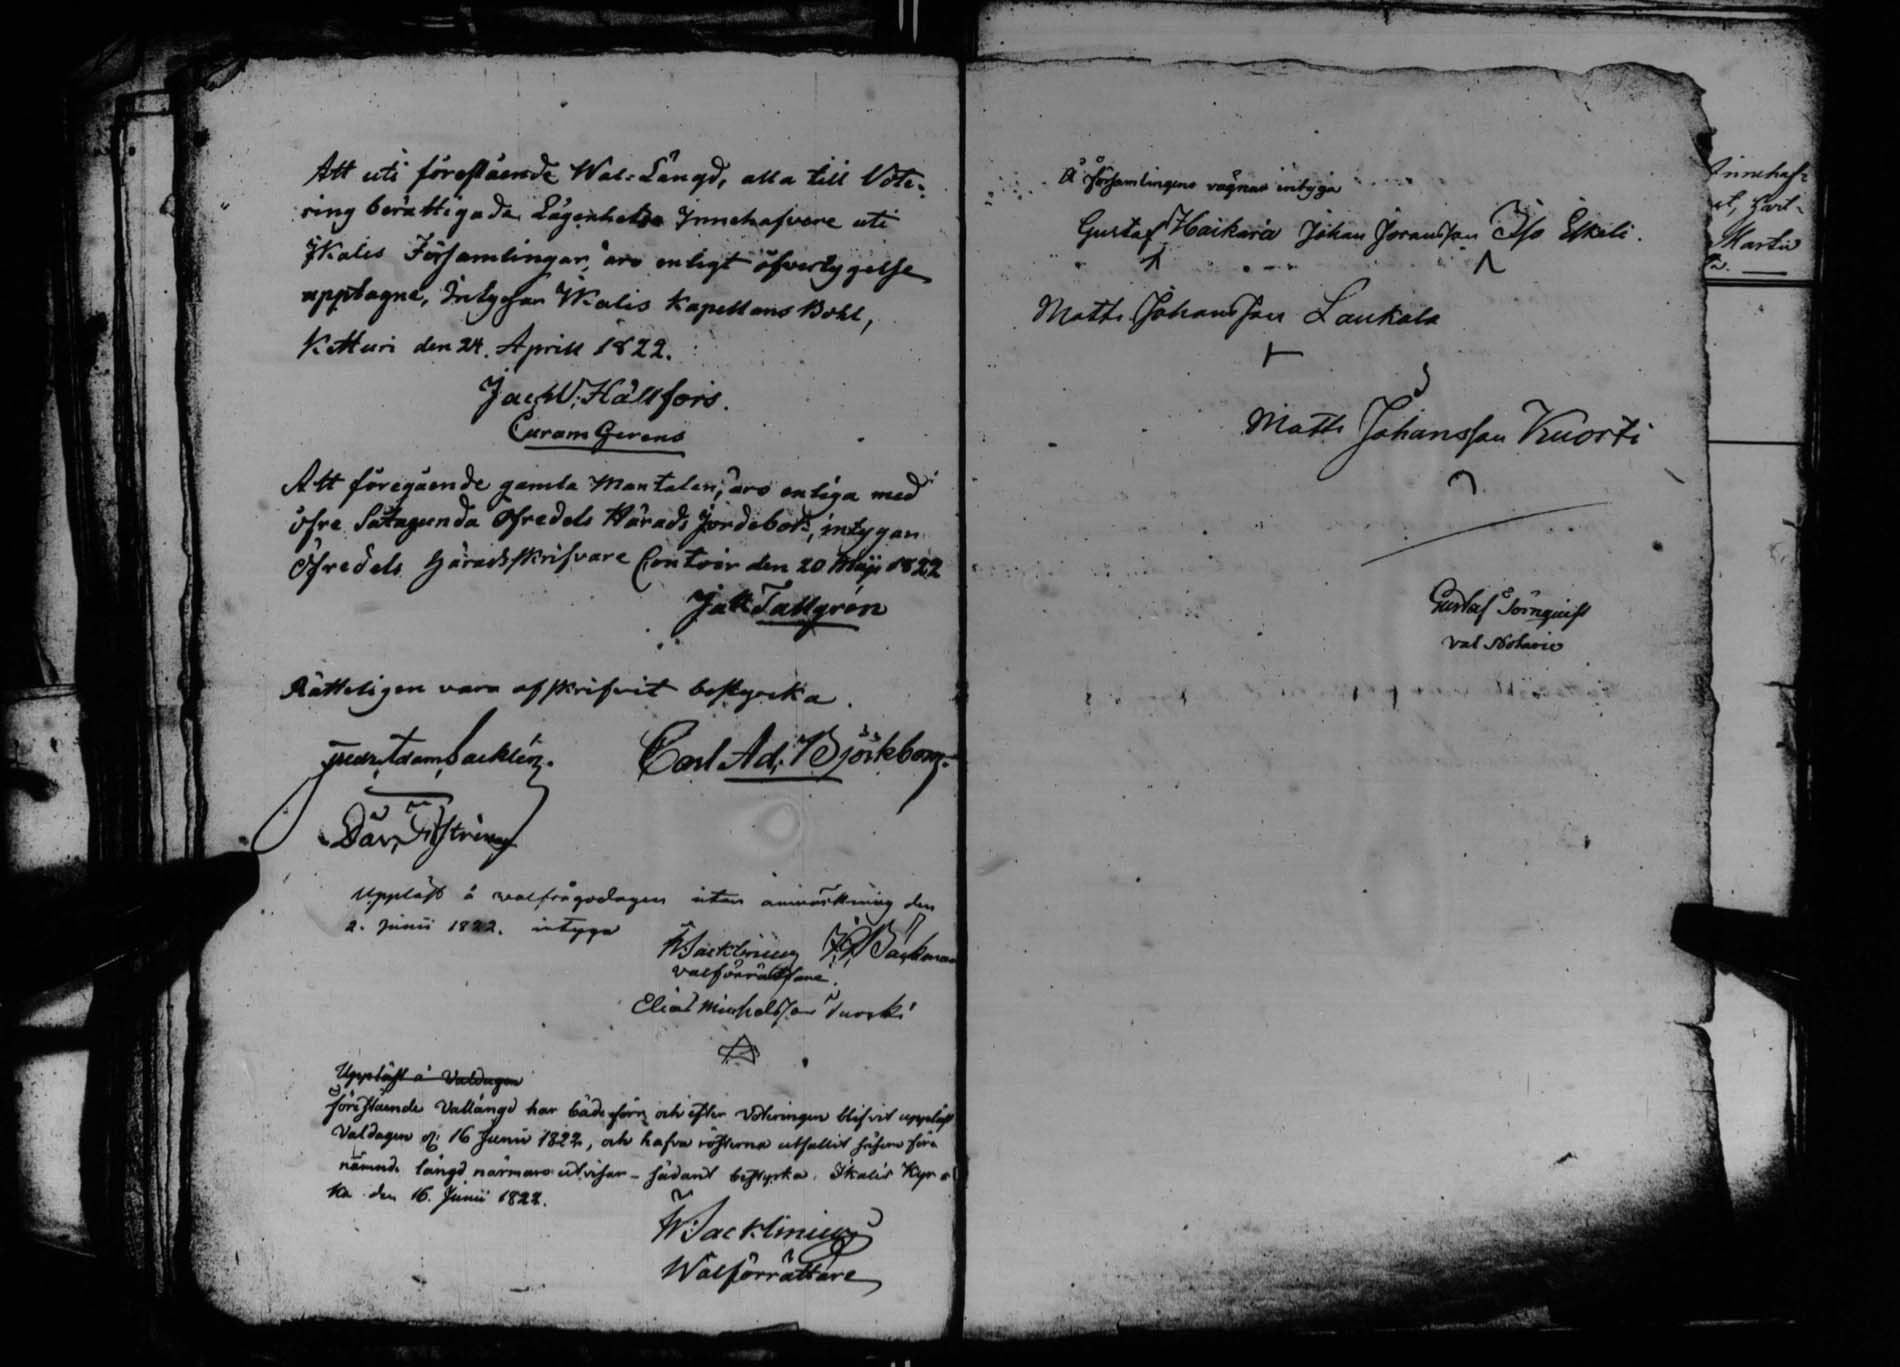 Att uti föreslående Wal-Längd, alla till Vote-
ring berättigade Lägenhets Innehafvare uti
Ikalis Församlingar, äro enligt öfvertygelse
upptagne, intygar Ikalis Kapellans Bohl,
Ketturi den 24. April 1822.
Jac. W. Hällfors.
Curam Gerens
Att föregående gamla Mantalen, äro enliga med
öfre Satagunda Öfredels Härads Jordebok, intygar
Öfredels Häradsskrifvare Contoir den 20 Maji 1822
Jak Tallgrén
Rätteligen vara afskrifvit bestyrka.
Carl Ad. Björkbom.
Uppläst å valfrågodagen utan anmärkning den
2. Junii 1822. intyga
W Sacklinius Bäckman
valförrättare.
Elias Michelsson Turski
Uppläst å Valdagen
föreslående Vallängd har både förr och efter Voteringen blifvit uppläst
Valdagen d. 16 Junii 1822, och hafva rösterna utfallit såsom före
nämnde längd närmare utvisar - sådant bestyrka. Ikalis Kyr
ka den 16. Junii 1822.
W: Sacklinius
Walförrättare
Å Församlingens vägnar intyga
Gustaf Haikara Johan Joransson Iso Eskeli.
Matts Johansson Laukala
Matts Johansson Kuorti
Gustaf Törnquist
Val Notarie
Innehaf-
Martis